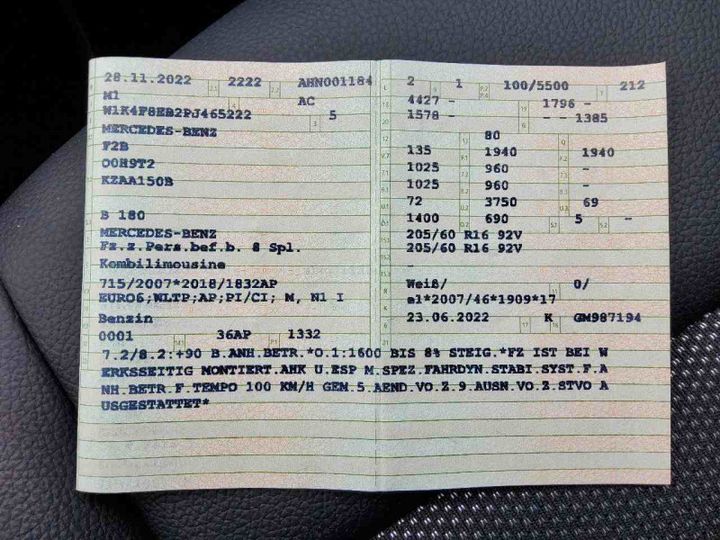 28.11.2022 2222 AHN001184
M1 AC
W1K4F8EB2PJ465222 5
MERCEDES-BENZ
F2B
OOH9T2
KZAA150B
B 180
MERCEDES-BENZ
Fz.z.Pers.bef.b. 8 Spl.
Kombilimousine
715/2007*2018/1832AP
EURO6;WLTP;AP;PI/CI; M, N1 I
Benzin
0001 36AP 1332
2 1 100/5500 212
4427 - 1796 -
1578 - - - 1385
80
135 1940 1940
1025 960 -
1025 960 -
72 3750 69
1400 690 5 -
205/60 R16 92V
205/60 R16 92V
-
Weiß/ 0/
e1*2007/46*1909*17
23.06.2022 K GM987194
7.2/8.2:+90 B.ANH.BETR.*O.1:1600 BIS 8% STEIG.*FZ IST BEI W
ERKSSEITIG MONTIERT.AHK U.ESP M.SPEZ.FAHRDYN.STABI.SYST.F.A
NH.BETR.F.TEMPO 100 KM/H GEM.5.AEND.VO.Z.9.AUSN.VO.Z.STVO A
USGESTATTET*